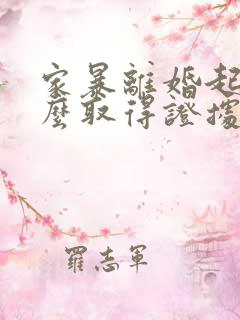 家暴離婚起
麼取得證據
羅志軍